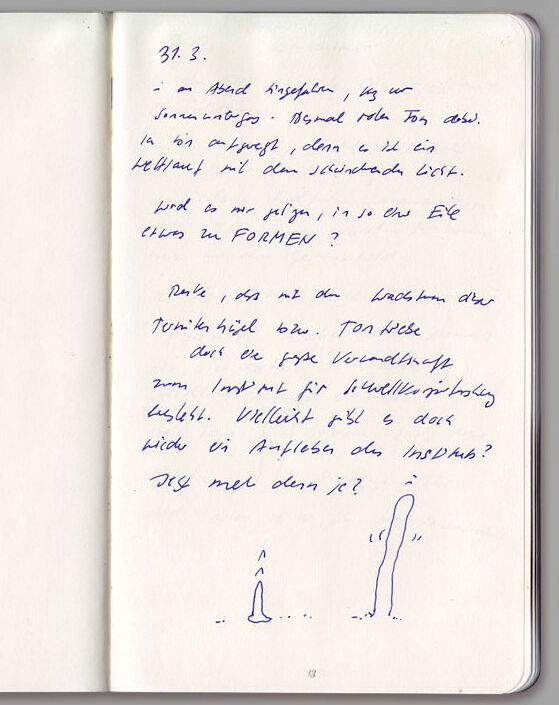 31. 3.
am Abend hingefahren, kurz vor
Sonnenuntergang. Diesmal roten Ton dabei.
Ich bin aufgeregt, denn es ist ein
Wettlauf mit dem schwindenden Licht.
Wird es mir gelingen, in so einer Eile
etwas zu FORMEN?
Denke, dass mit dem Wachstum dieser
Termitenhügel bzw. Tontriebe
doch eine große Verwandtschaft
zum Institut für
besteht. Vielleicht gibt es doch
wieder ein Aufleben des Instituts?
Jetzt mehr denn je?
13